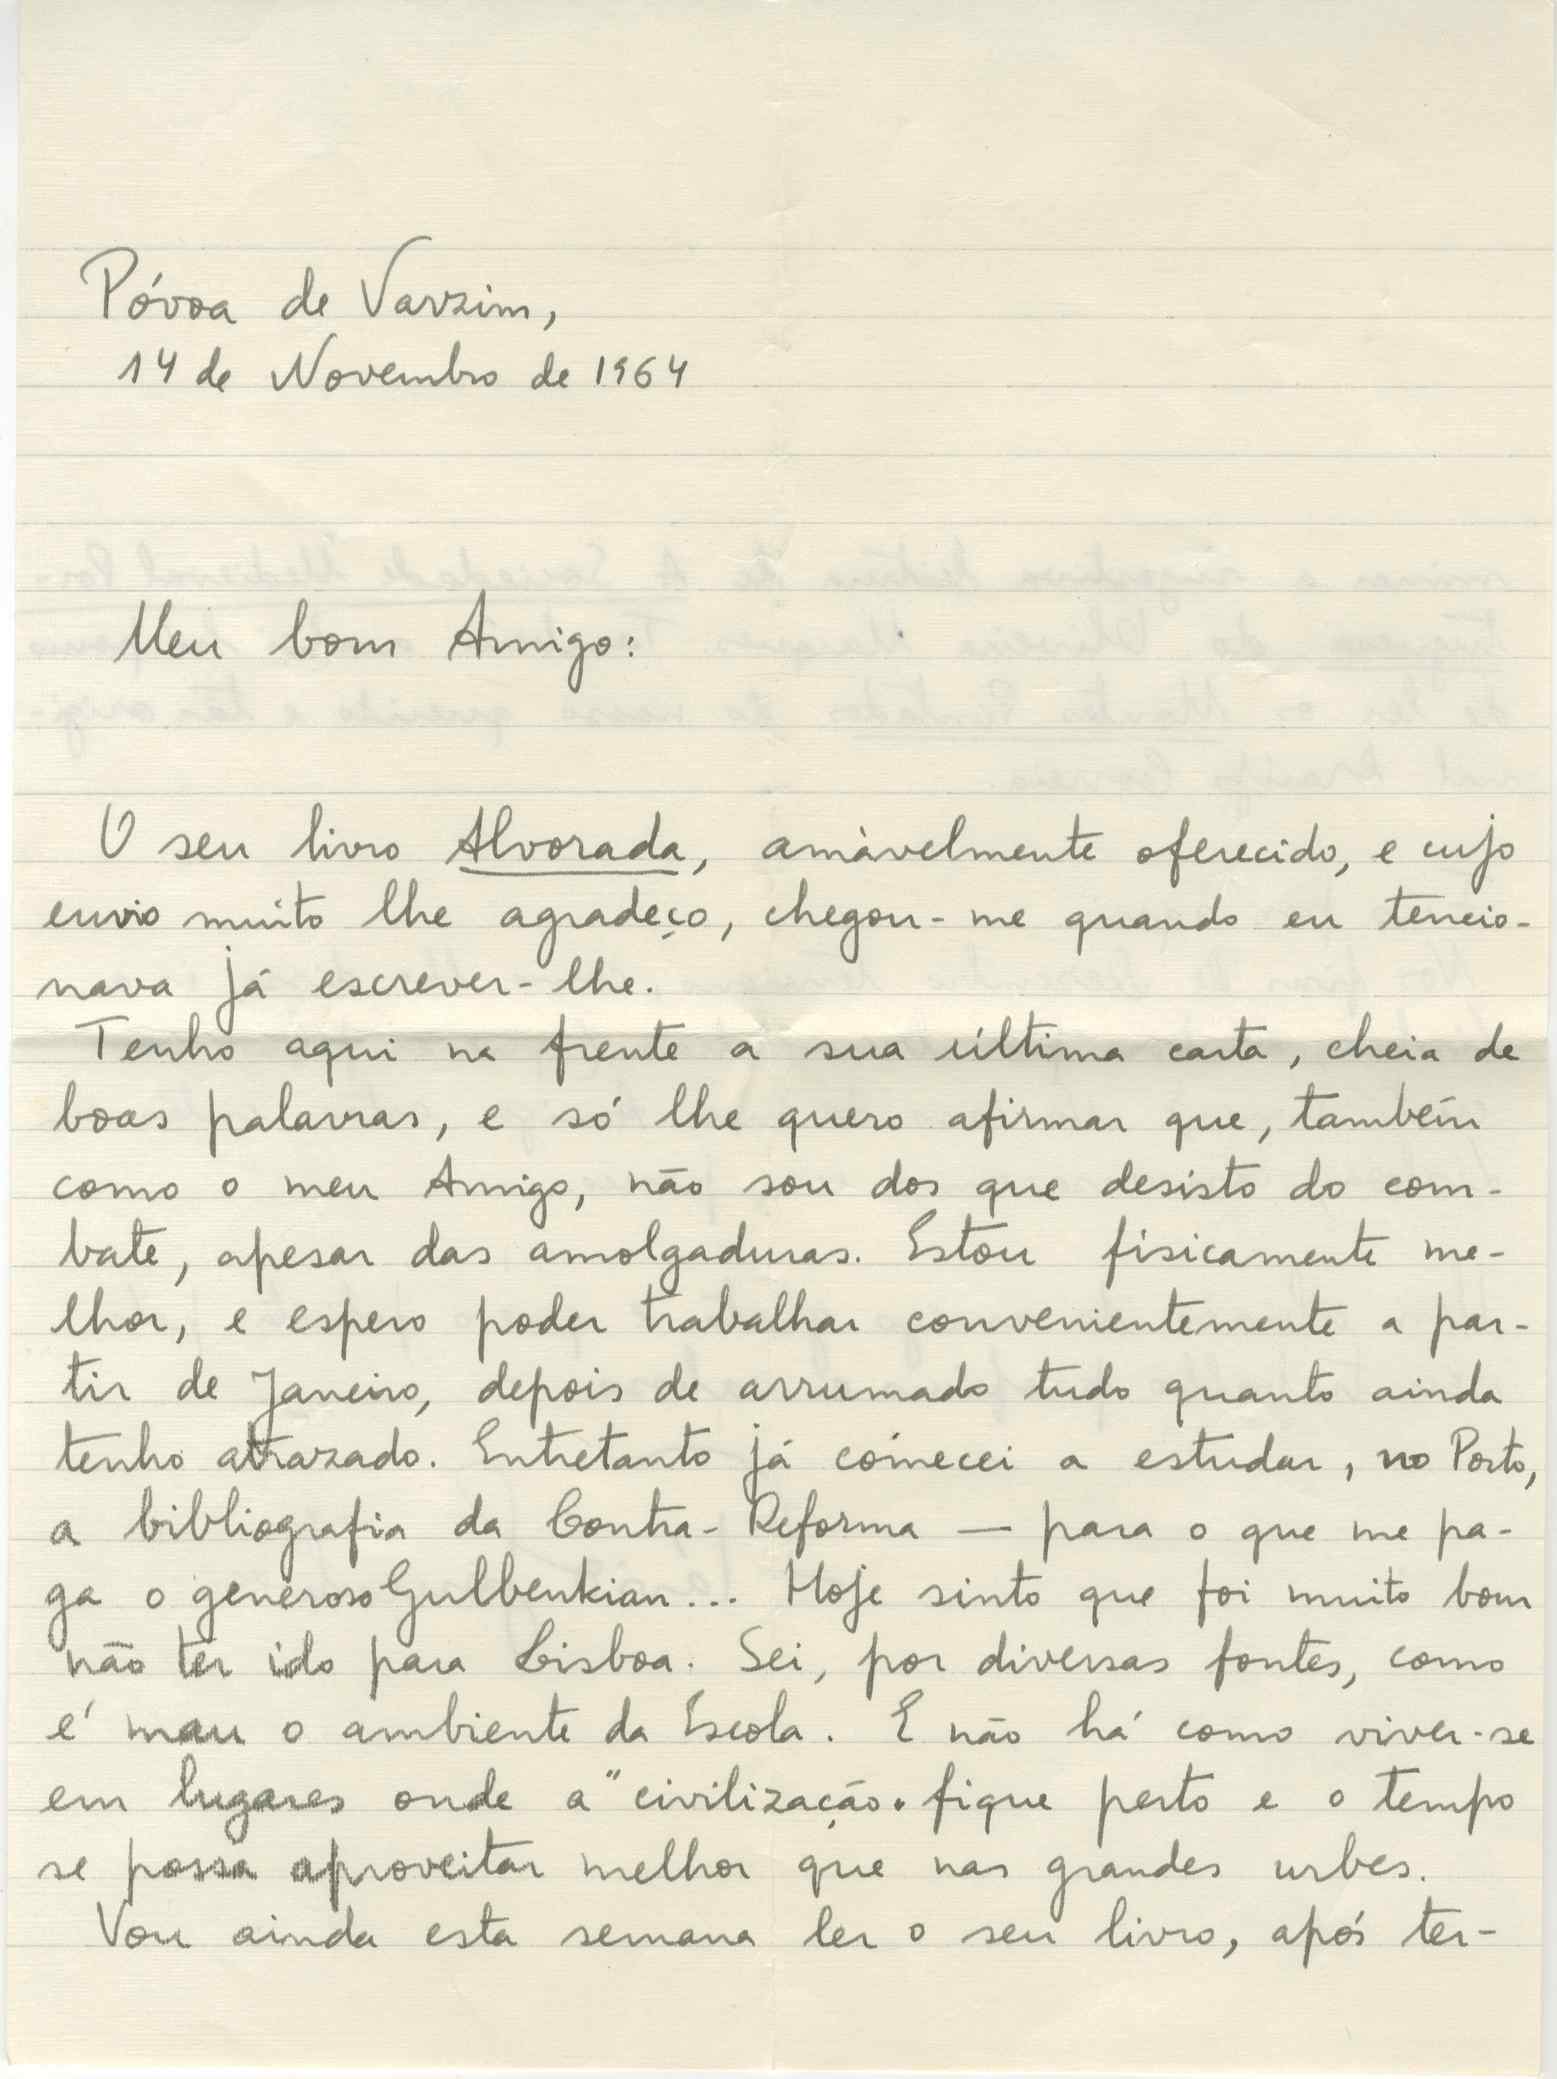 Póvoa de Varzim,
14 de Novembro de 1964
Meu bom Amigo:
O seu livro Alvorada, amàvelmente oferecido, e cujo
envio muito lhe agradeço, chegou-me quando eu tencio-
nava já escrever-lhe.
Tenho aqui na frente a sua última carta, cheia de
boas palavras, e só lhe quero afirmar que, também
como o meu Amigo, não sou dos que desisto do com-
bate, apesar das amolgaduras. Estou fisicamente me-
lhor, e espero poder trabalhar convenientemente a par-
tir de Janeiro, depois de arrumado tudo quanto ainda
tenho atrazado. Entretanto já comecei a estudar, no Porto,
a bibliografia da Contra-Reforma — para o que me pa-
ga o generoso Gulbenkian... Hoje sinto que foi muito bom
não ter ido para Lisboa. Sei, por diversas fontes, como
é mau o ambiente da Escola. E não há como viver-se
em lugares onde a "civilização" fique perto e o tempo
se possa aproveitar melhor que nas grandes urbes.
Vou ainda esta semana ler o seu livro, após ter-